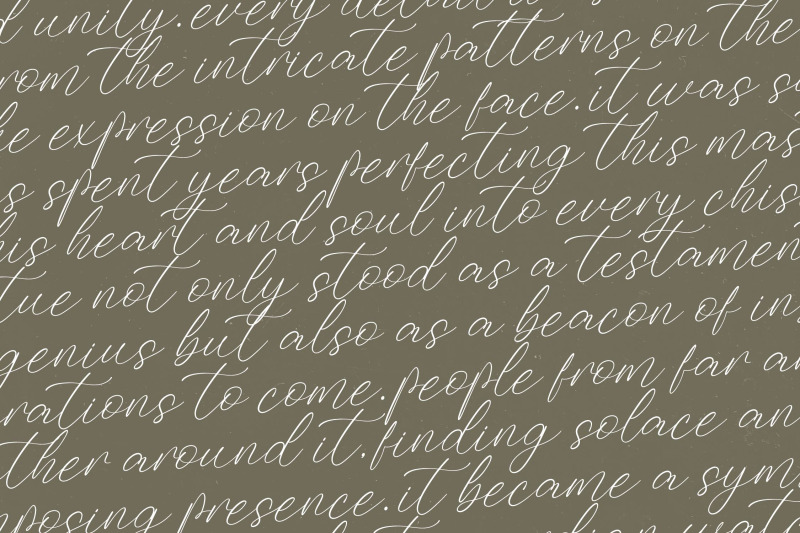 d unity.every detail
rom the intricate patterns on the
he expression on the face.it was s
s spent years perfecting this mas
his heart and soul into every chis
tue not only stood as a testamen
genius but also as a beacon of ins
rations to come.people from far an
ther around it.finding solace an
posing presence.it became a sym